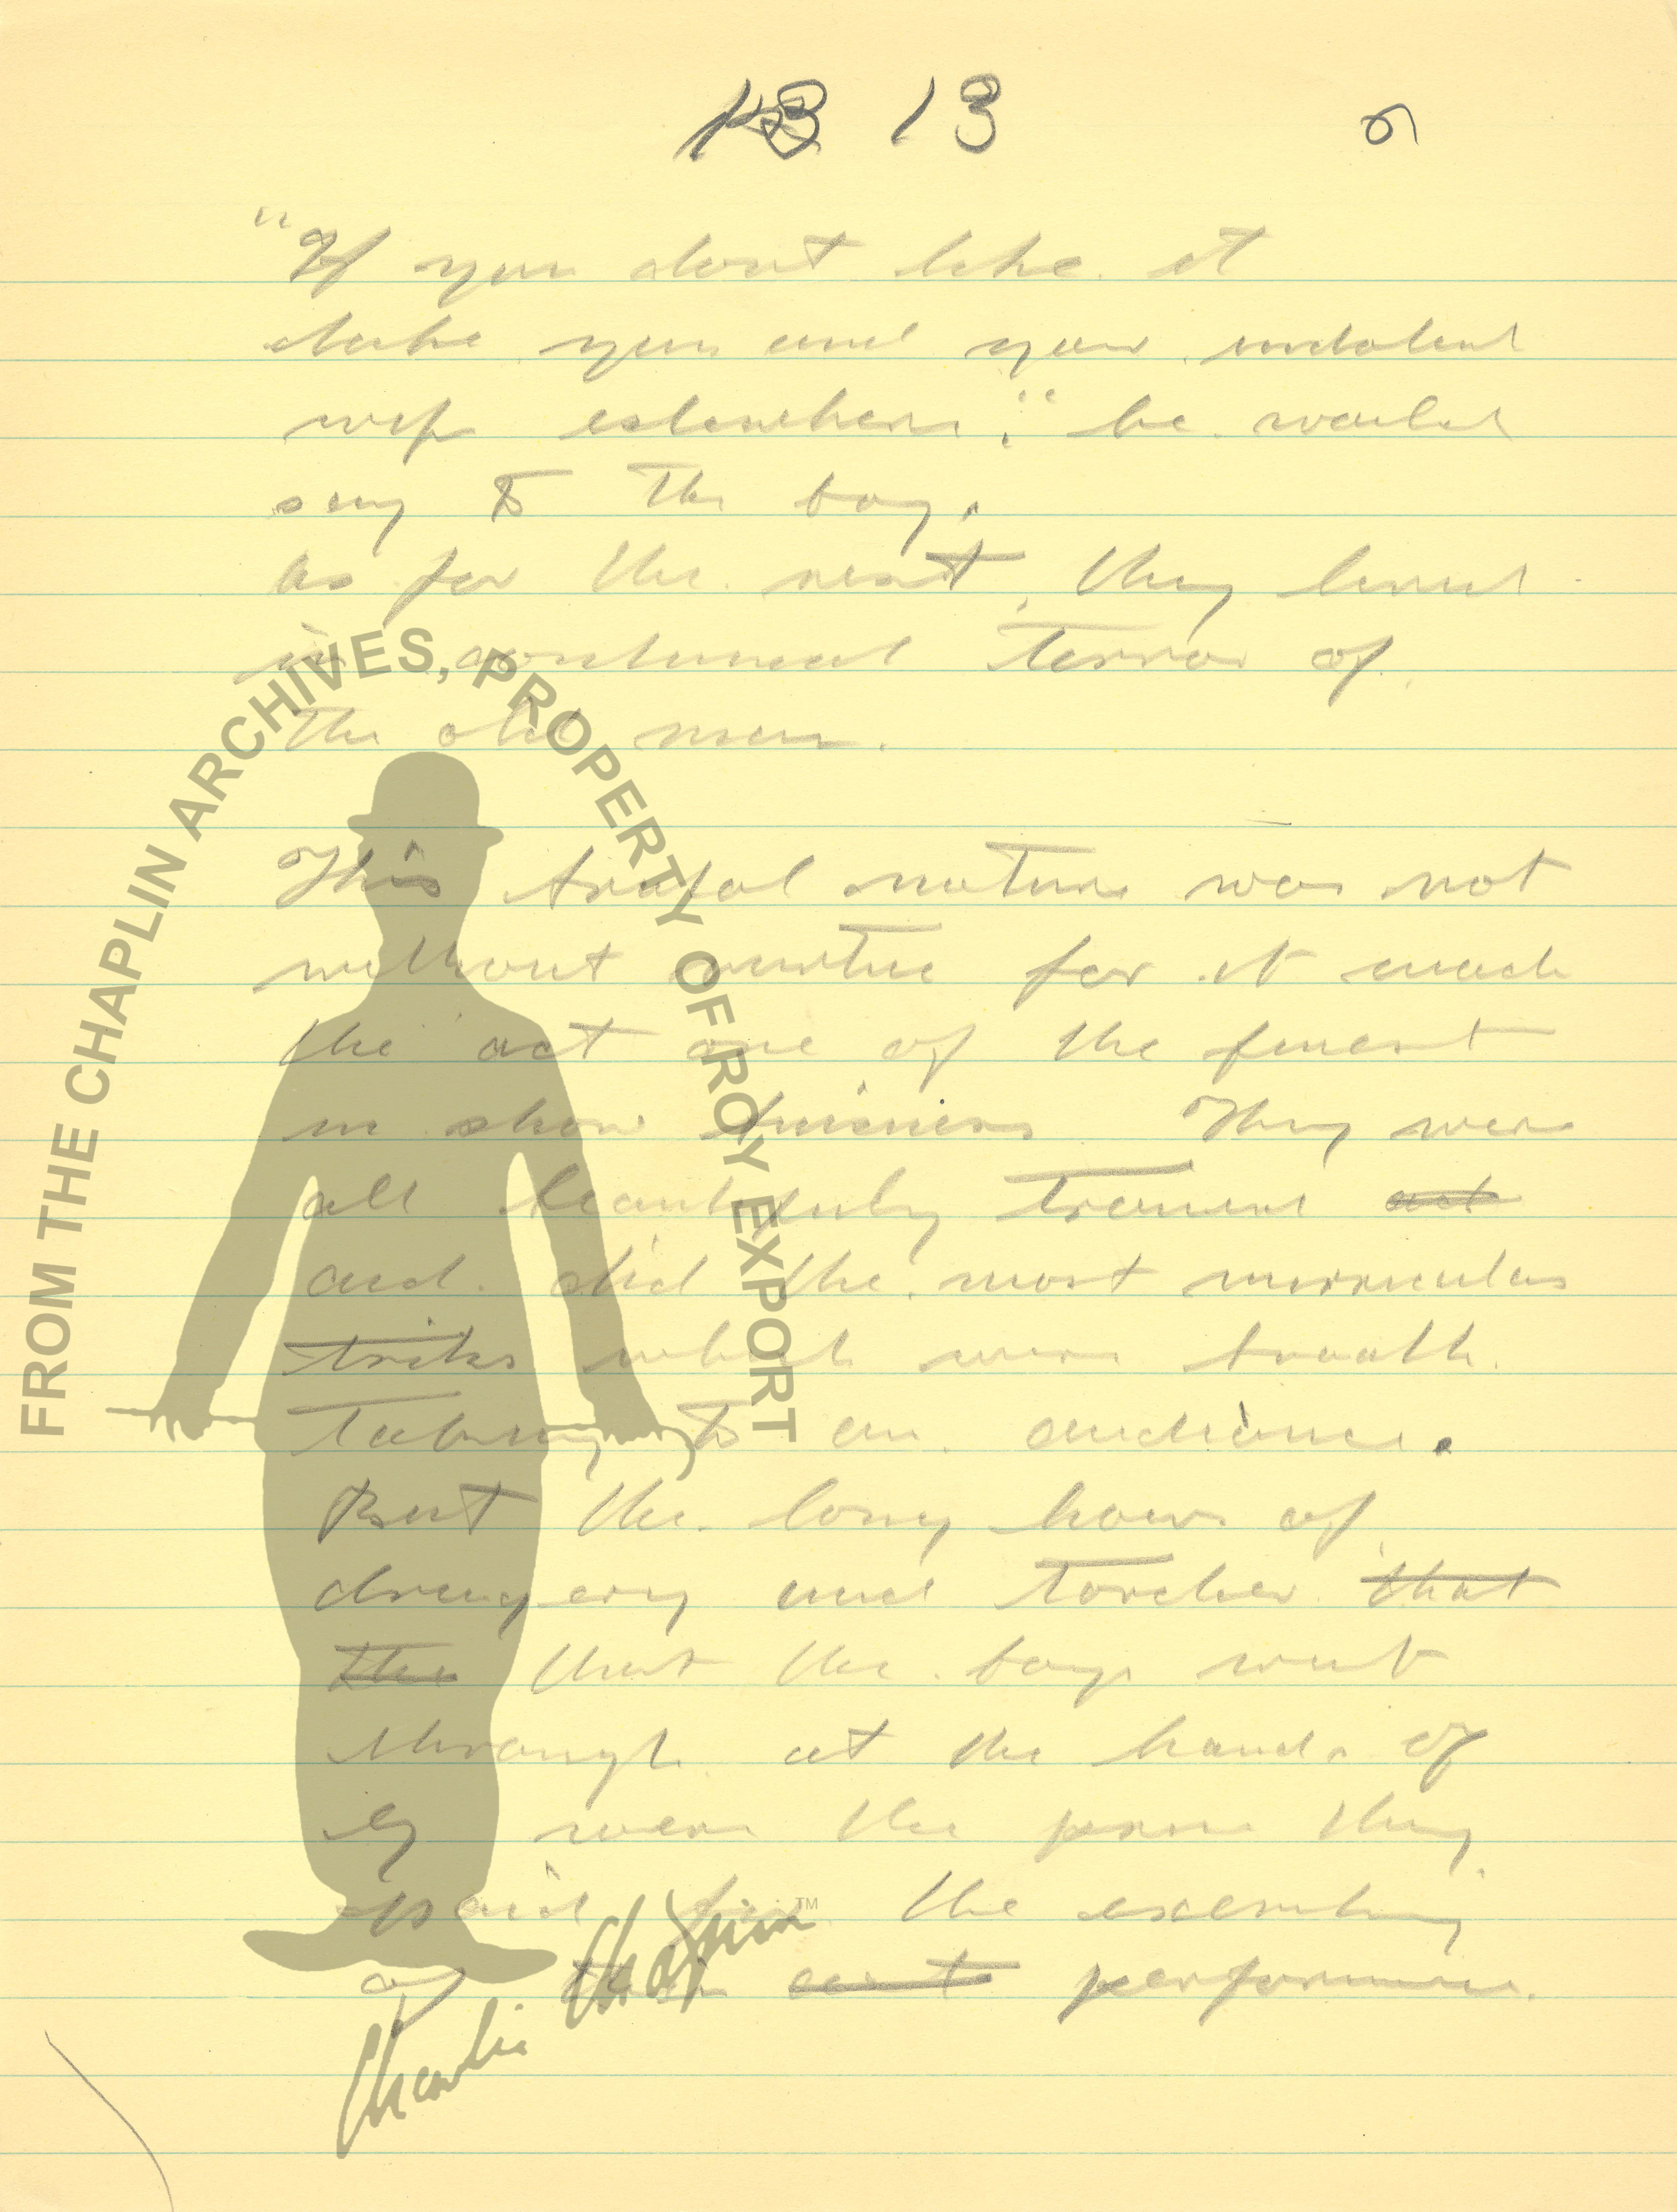 13 6
"If you dont like it
take you and your indolent
wif eslewhere." he would
say to the boy.
as for the rest, they lived
in continual terror of
the old man.
This frugal nature was not
without virtue for it made
the act one of the finest
in show buisness They were
all beautifuly trained act
and did the most mirraculas
triks which were breath
taking to an audience.
But the long hours of
drugery and torcher that
the that the boys went
through at the hands of
were the price they
paid for the
of their act performance.
FROM THE CHAPLIN ARCHIVES, PROPERTY OF ROY EXPORT
Charlie Chaplin™